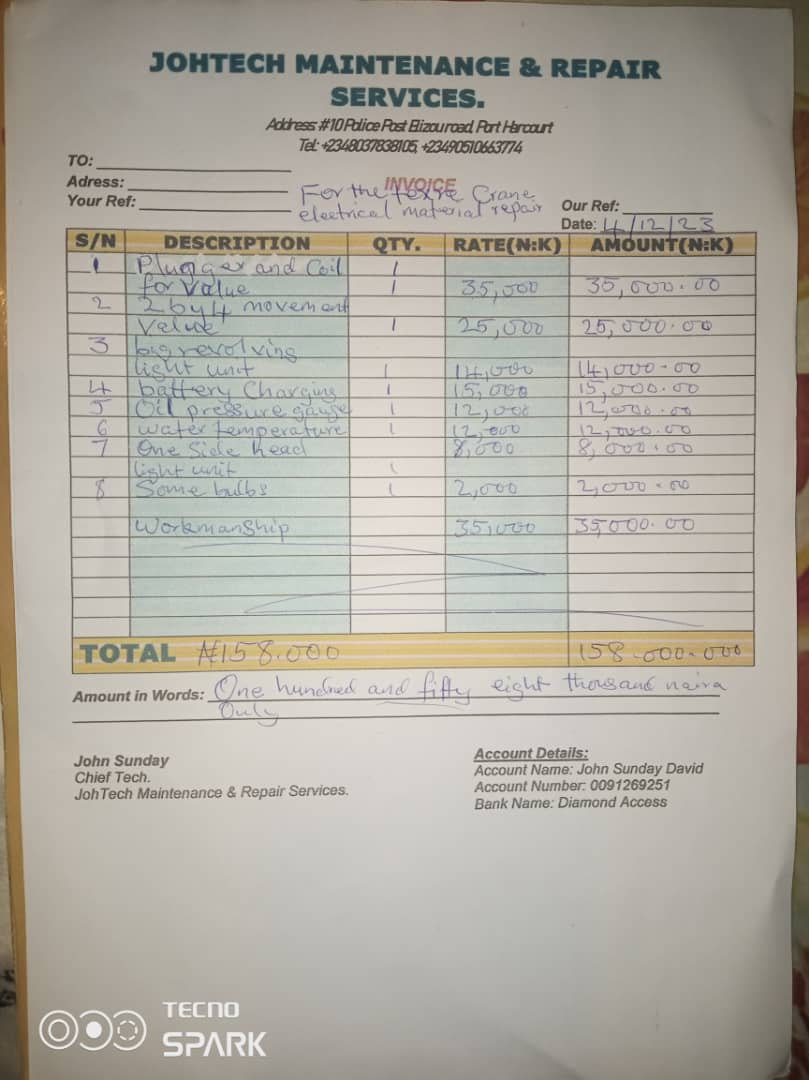 JOHTECH MAINTENANCE & REPAIR
SERVICES.
Address: #10 Police Post Elizou road, Port Harcourt
Tel: +2348037838105, +23490510663774
TO:
Adress:
Your Ref:
INVOICE
For the Crane
electrical material repair
Our Ref:
Date: 4/12/23
S/N DESCRIPTION QTY. RATE(N:K) AMOUNT(N:K)
1 Plugger and Coil 1
for Value 1 35,000 35,000.00
2 2 by 4 movement
Value 1 25,000 25,000.00
3 big revolving
light unit 1 14,000 14,000-00
4 battery Charging 1 15,000 15,000.00
5 Oil pressure gauge 1 12,000 12,000.00
6 water temperature 1 12,000 12,000.00
7 One Side head 8,000 8,000.00
light unit 1
8 Some bulbs 1 2,000 2,000.00
Workmanship 35,000 35000.00
TOTAL ₦158.000 158.000.000
Amount in Words: One hundred and fifty eight thousand naira
Only
John Sunday
Chief Tech.
JohTech Maintenance & Repair Services.
Account Details:
Account Name: John Sunday David
Account Number: 0091269251
Bank Name: Diamond Access
TECNO
SPARK